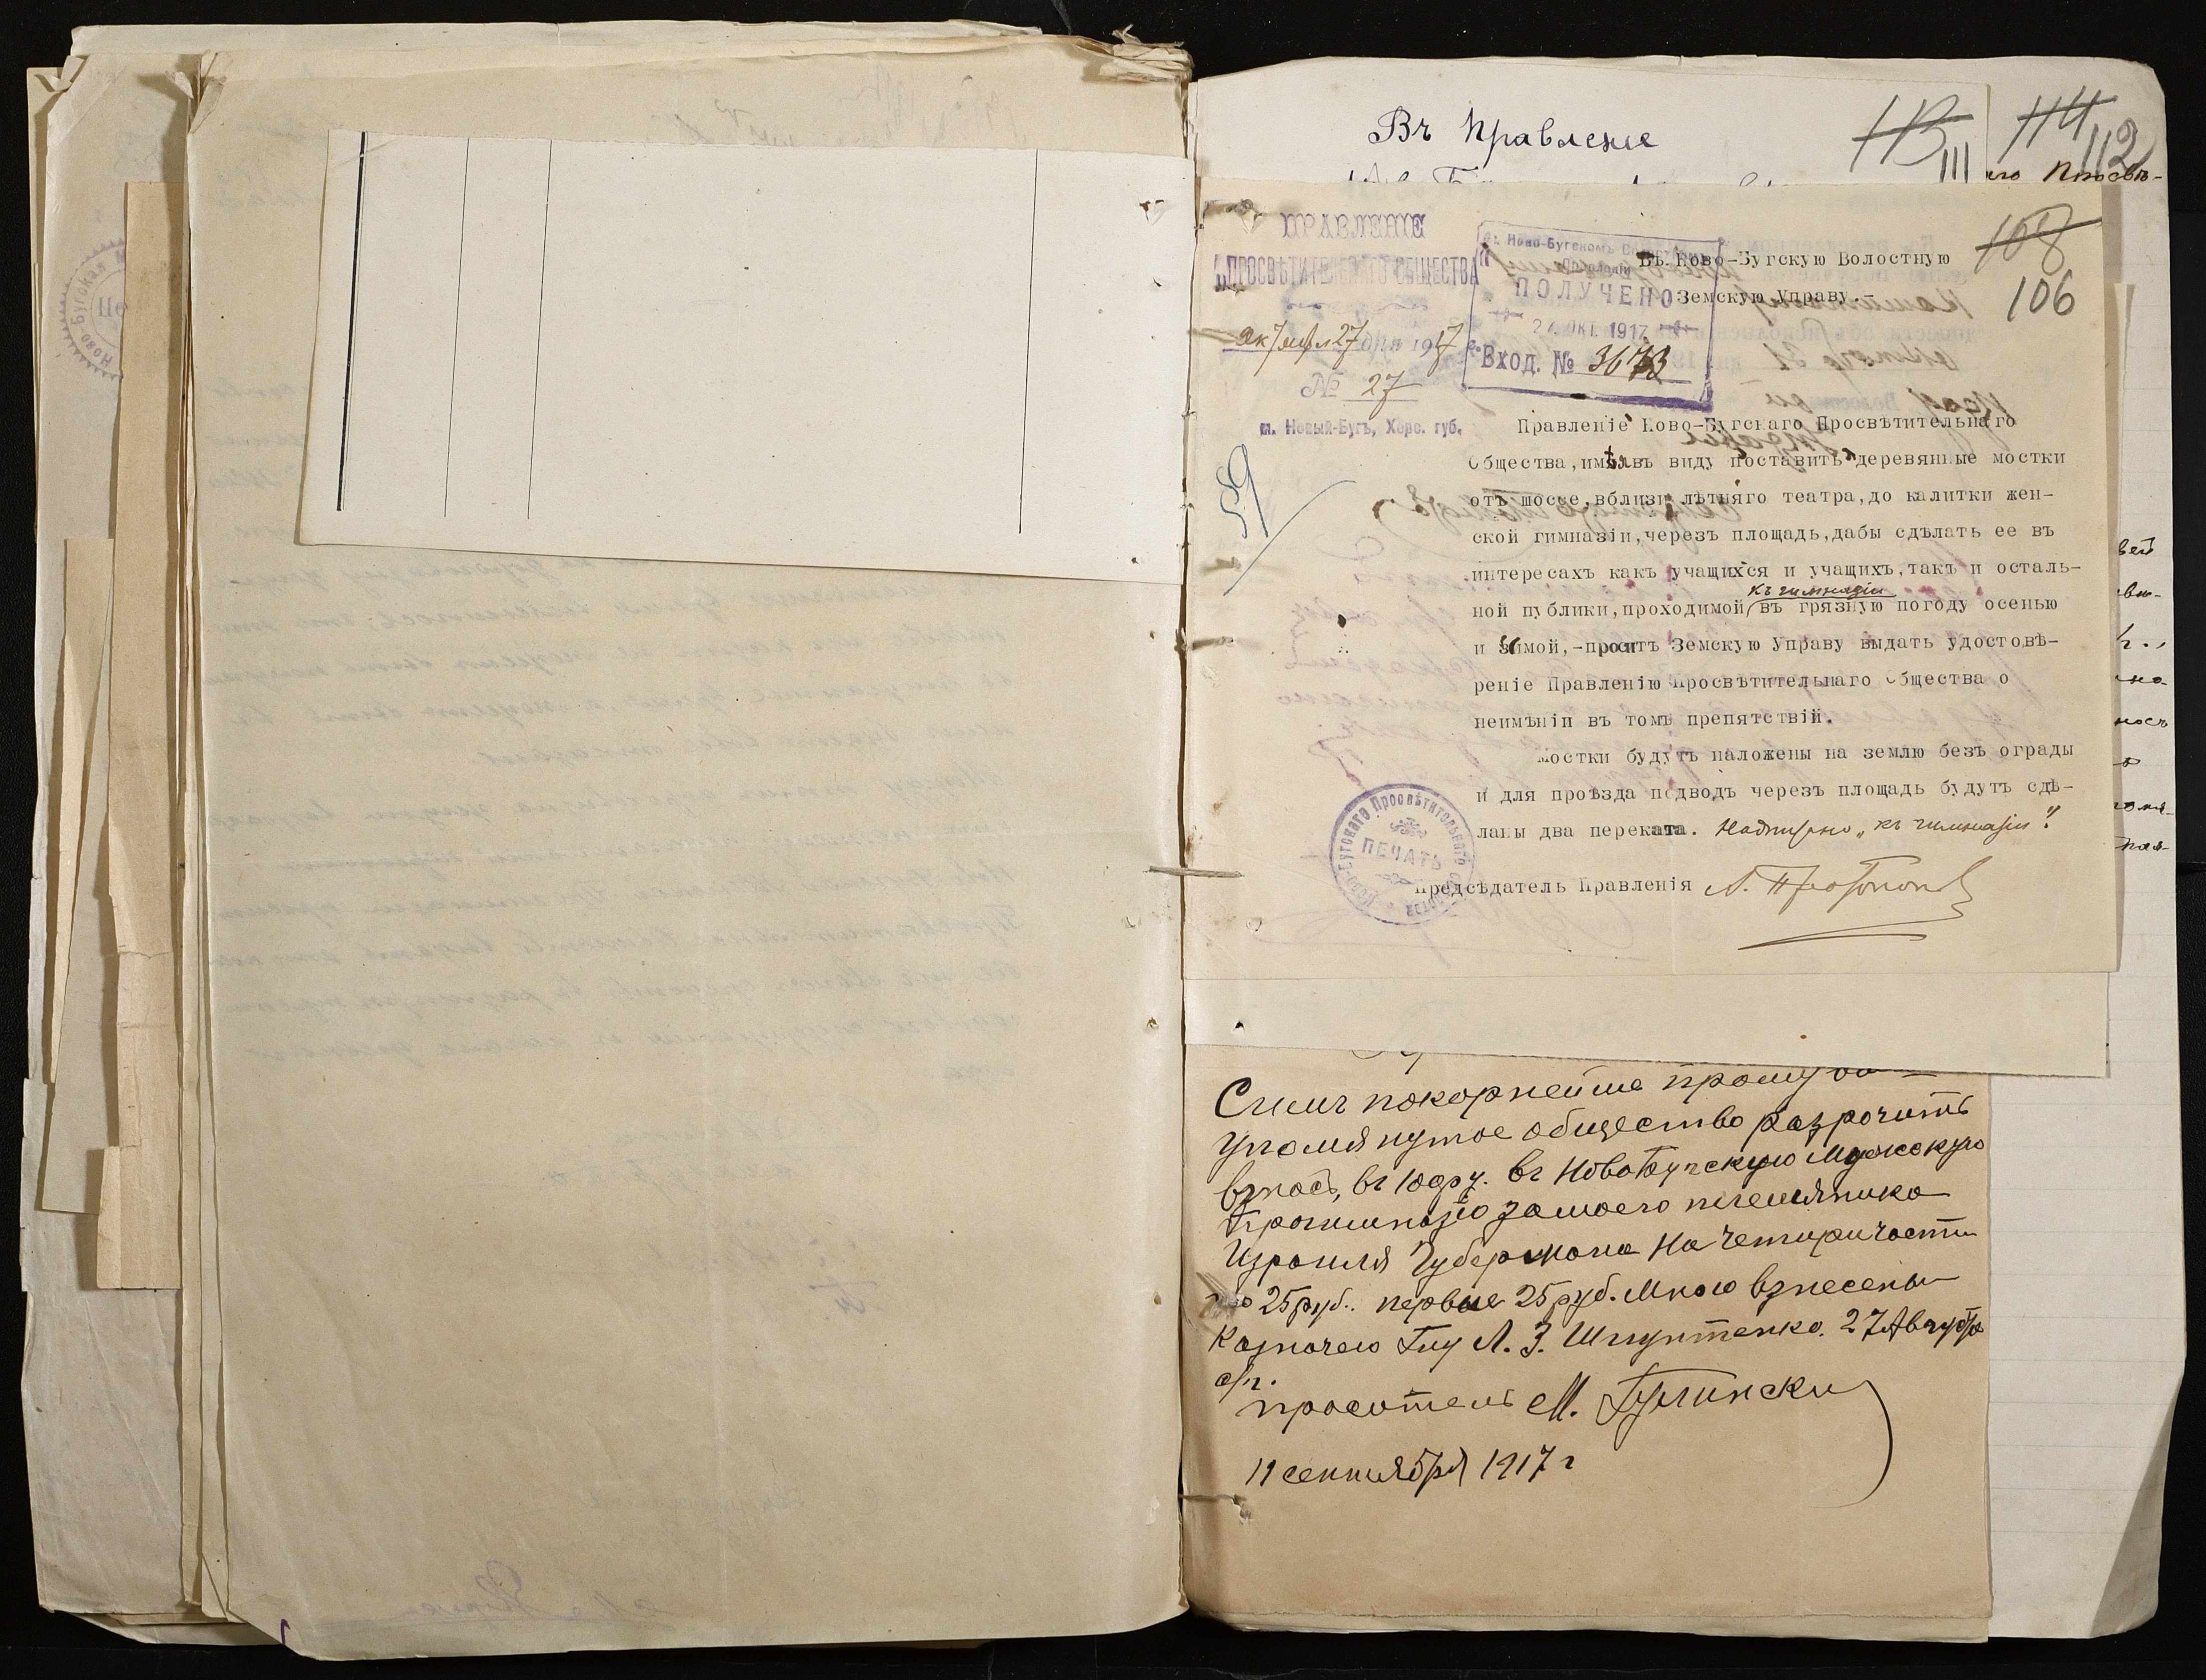 Въ Правленіе
113
111
114
112
ПРАВЛЕНІЕ
„ПРОСВѢТИТЕЛЬНАГО ОБЩЕСТВА"
октября 27 дня 1917 г.
№ 27
м. Новый-Бугъ, Херс. губ.
59
ПОЛУЧЕНО
27 ОКТ. 1917
Вход. № 3673
108
106
Въ Ново-Бугскую Волостную
Земскую Управу.-
Правленіе Ново-Бугскаго Просвѣтительнаго
Общества, имѣя въ виду поставить деревянные мостки
отъ шоссе, вблизи лѣтняго театра, до калитки жен-
ской гимназіи, черезъ площадь, дабы сдѣлать ее въ
интересахъ какъ учащихся и учащихъ, такъ и осталь-
къ гимназіи
ной публики, проходимой въ грязную погоду осенью
и зимой,-проситъ Земскую Управу выдать удостовѣ-
реніе Правленію Просвѣтительнаго Общества о
неимѣніи въ томъ препятствій.
Мостки будутъ наложены на землю безъ ограды
и для проѣзда подводъ черезъ площадь будутъ сдѣ-
ланы два переката. Надписано „къ гимназіи".
Ново-Бугскаго Просвѣтительнаго Общества
ПЕЧАТЬ
Предсѣдатель Правленія А. Протопопов
Симъ покорнейше прошу
упомянутое общество разрочить
взносъ, въ 100 ру. въ Новобугскую Мужскую
Прогимназію за моего племянника
Израиля Губермана на четыри части
по 25 руб.. первые 25 руб. мною взнесены
Казначею Гну Л. З. Шкуптенко. 27 Августа
с/г.
проситель М. Гурлински
11 сентября 1917 г